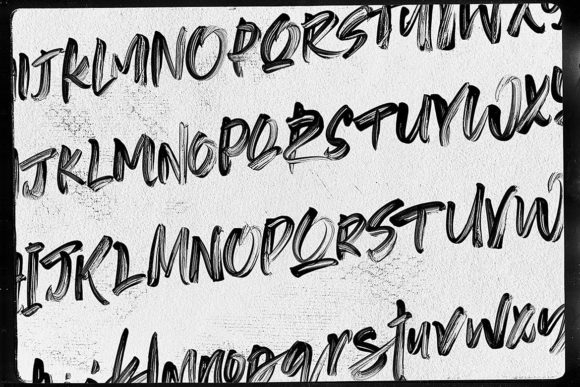 IJKLMNOPQRSTUVWXY
IJKLMNOPQRSTUVWXY
HIJKLMNOPQRSTUVW
hijklmnopqrstuvwxy